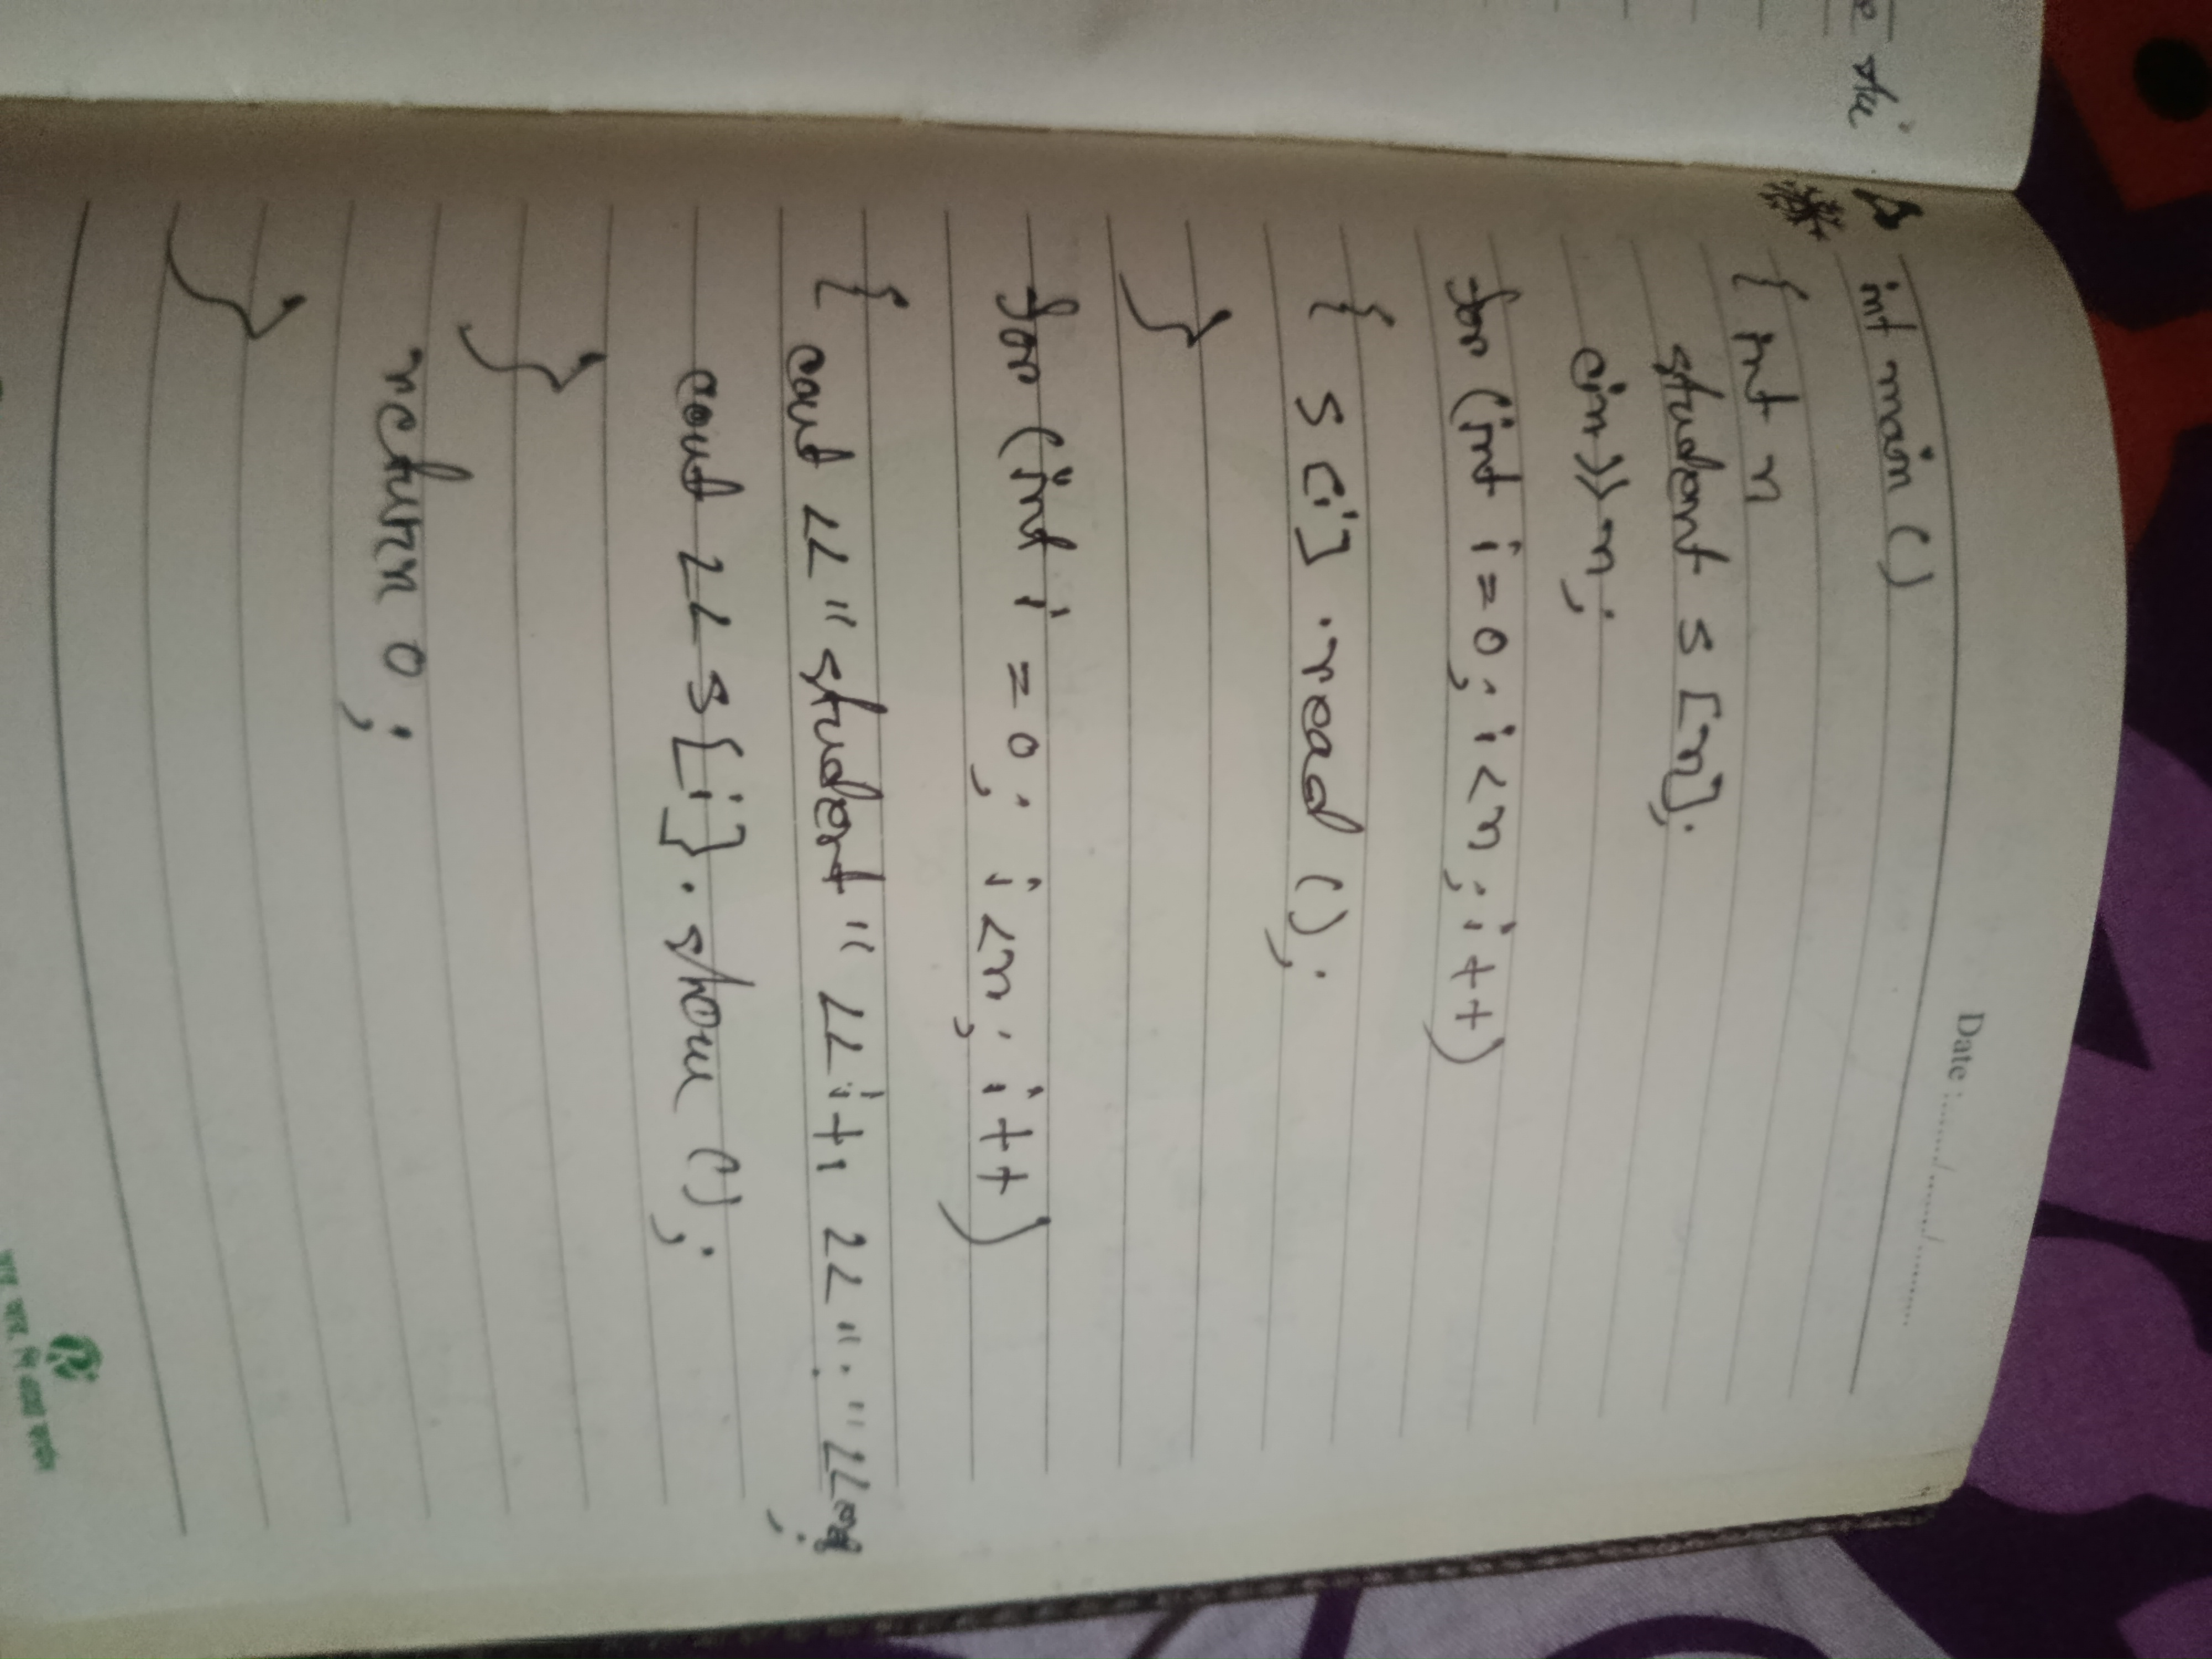 Date :......./......./..........
int main ()
{ int n
student s [n];
cin>>n;
for (int i=0; i<n; i++)
{ s[i].read ();
}
for (int i = 0; i<n; i++)
{ cout << "student" <<i+1 <<"."<<
cout << s[i].show ();
}
return 0;
}